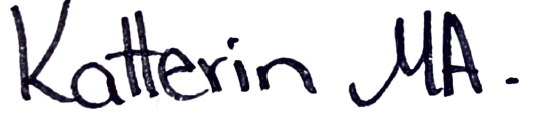 Katterin MA.